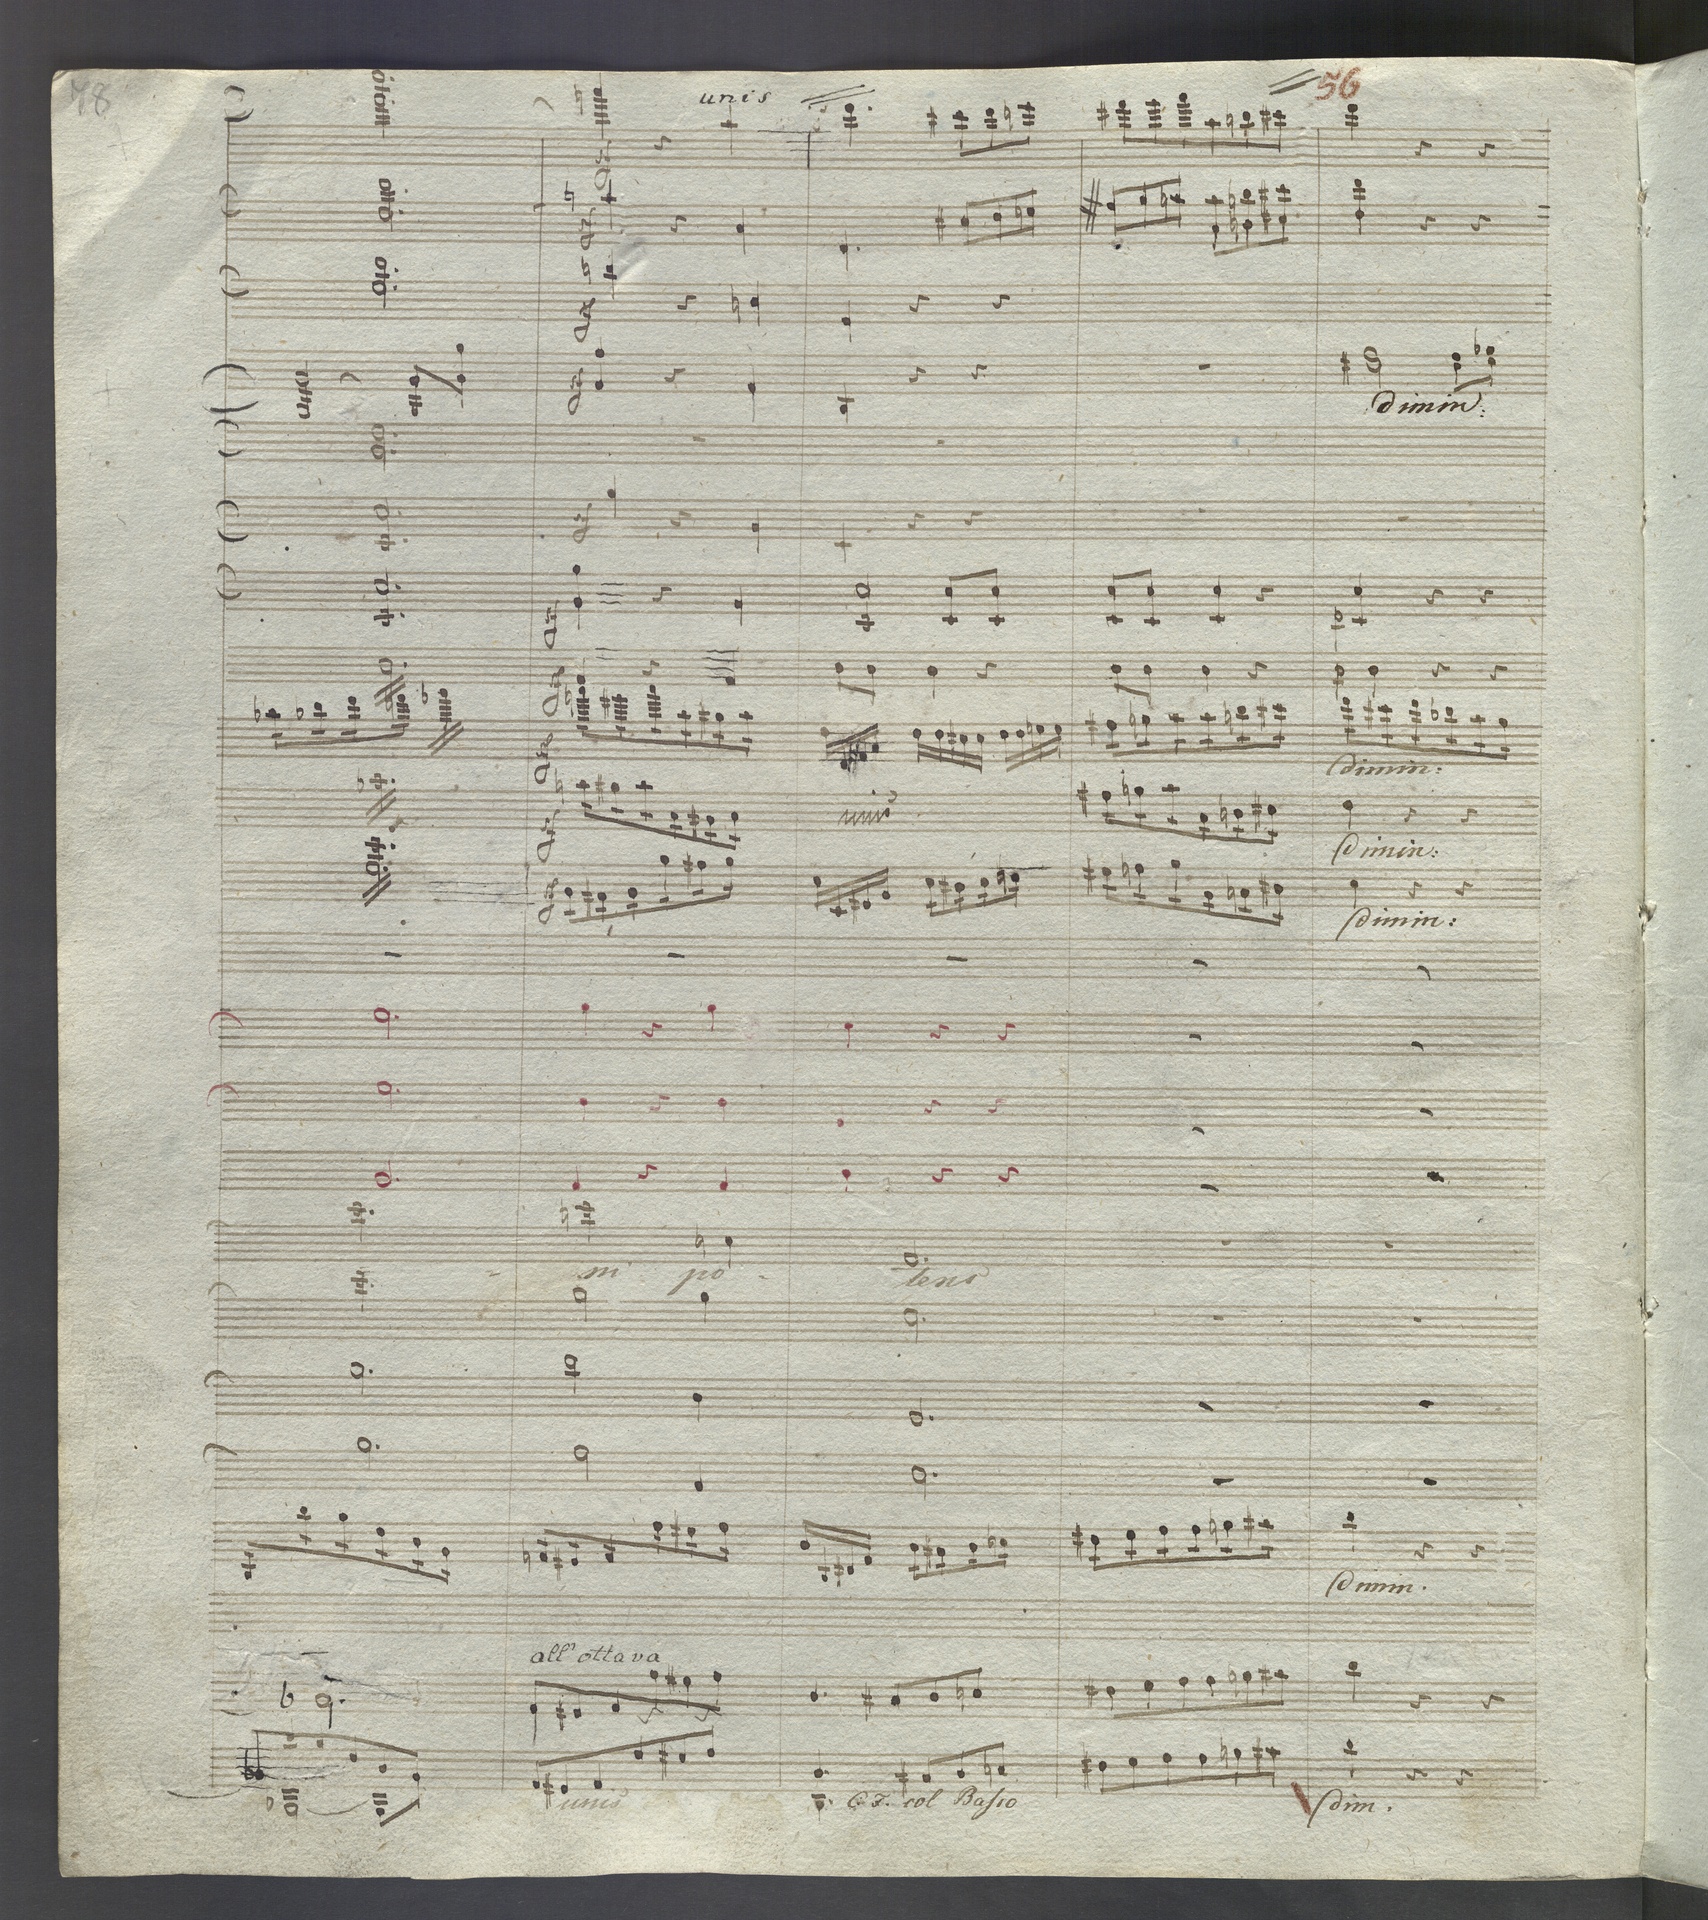 78
unis
56
dimin:
dimin:
unis
dimin:
dimin:
- ni po - tens
dimin.
all' ottava
unis
C F. col Basso
dim.